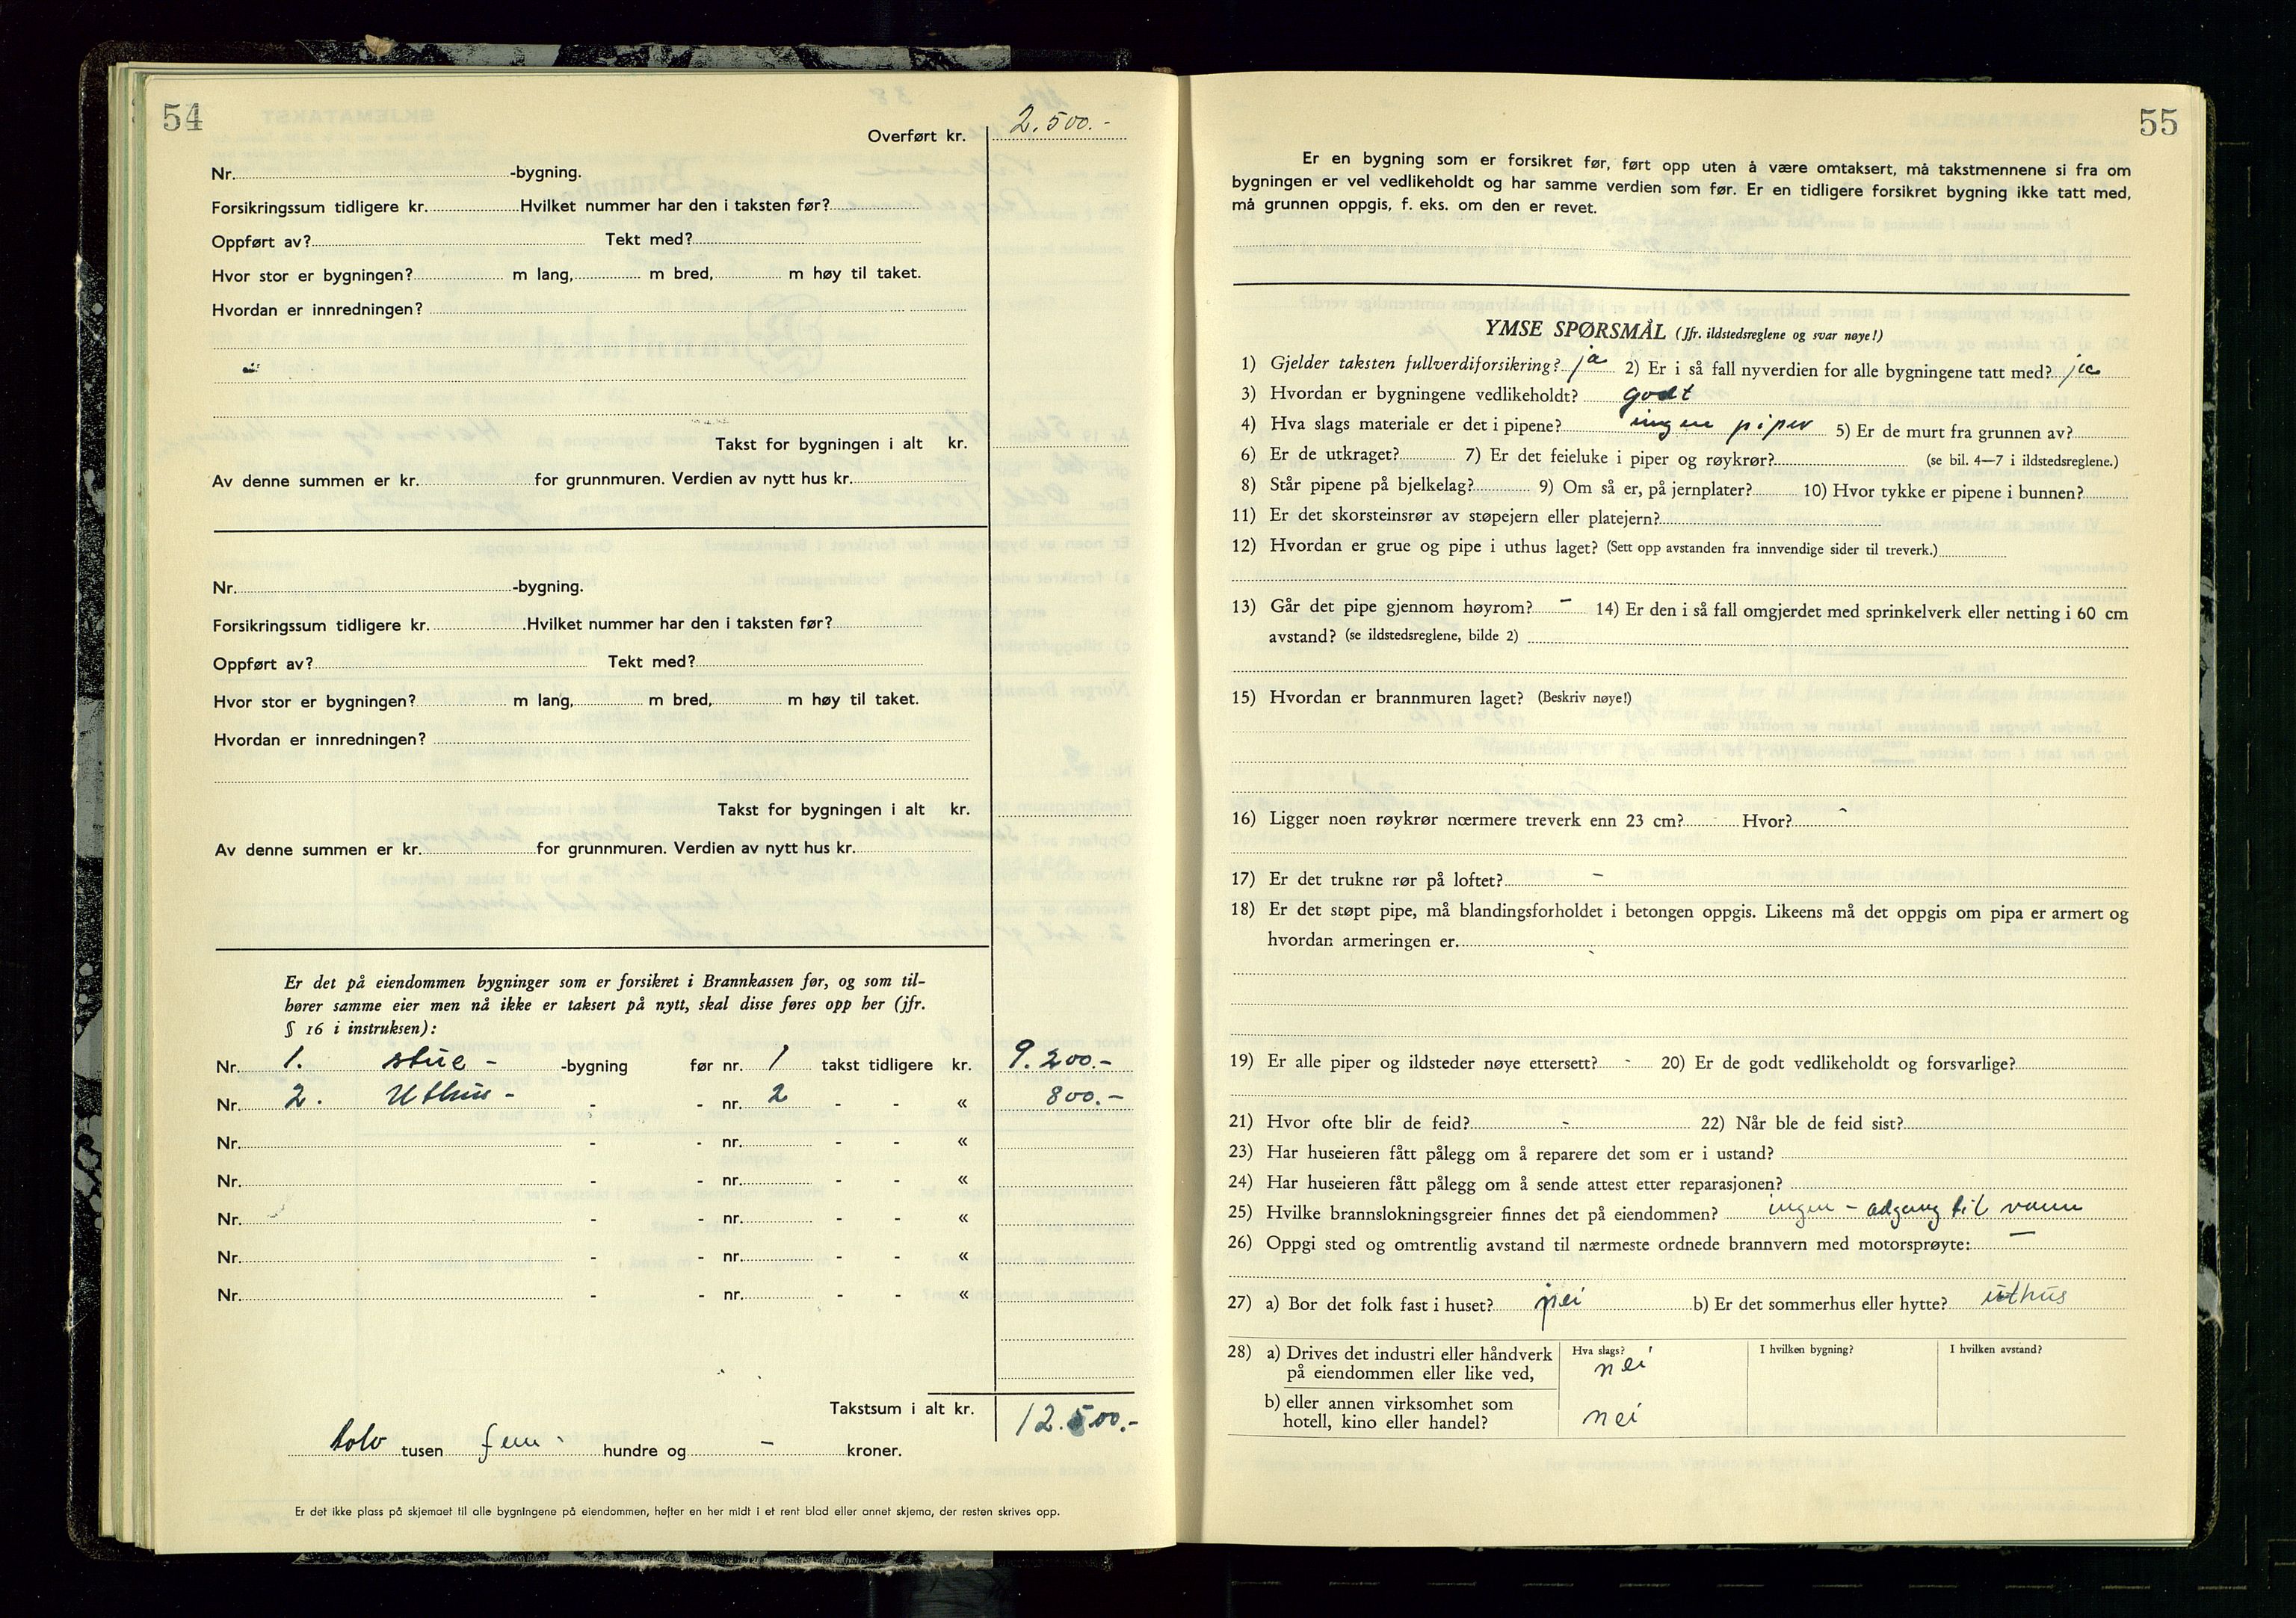 54
Overført kr. 2.500.-
Nr. -bygning.
Forsikringssum tidligere kr. Hvilket nummer har den i taksten før?
Oppført av? Tekt med?
Hvor stor er bygningen? m lang, m bred, m høy til taket.
Hvordan er innredningen?
Takst for bygningen i alt kr.
Av denne summen er kr. for grunnmuren. Verdien av nytt hus kr.
Nr. -bygning.
Forsikringssum tidligere kr. Hvilket nummer har den i taksten før?
Oppført av? Tekt med?
Hvor stor er bygningen? m lang, m bred, m høy til taket.
Hvordan er innredningen?
Takst for bygningen i alt kr.
Av denne summen er kr. for grunnmuren. Verdien av nytt hus kr.
Er det på eiendommen bygninger som er forsikret i Brannkassen før, og som til-
hører samme eier men nå ikke er taksert på nytt, skal disse føres opp her (jfr.
§ 16 i instruksen):
Nr. 1. stue - -bygning før nr. 1 takst tidligere kr. 9.200.-
Nr. 2. Uthus - - - nr. 2 - - « 800.-
Nr. - - nr. - - «
Nr. - - nr. - - «
Nr. - - nr. - - «
Nr. - - nr. - - «
Nr. - - nr. - - «
Takstsum i alt kr. 12.500.-
tolv tusen fem hundre og - kroner.
Er det ikke plass på skjemaet til alle bygningene på eiendommen, hefter en her midt i et rent blad eller annet skjema, der resten skrives opp.
55
Er en bygning som er forsikret før, ført opp uten å være omtaksert, må takstmennene si fra om
bygningen er vel vedlikeholdt og har samme verdien som før. Er en tidligere forsikret bygning ikke tatt med,
må grunnen oppgis, f. eks. om den er revet.
YMSE SPØRSMÅL (Jfr. ildstedsreglene og svar nøye!)
1) Gjelder taksten fullverdiforsikring? ja 2) Er i så fall nyverdien for alle bygningene tatt med? ja
3) Hvordan er bygningene vedlikeholdt? godt
4) Hva slags materiale er det i pipene? ingen piper 5) Er de murt fra grunnen av?
6) Er de utkraget? 7) Er det feieluke i piper og røykrør? (se bil. 4—7 i ildstedsreglene.)
8) Står pipene på bjelkelag? 9) Om så er, på jernplater? 10) Hvor tykke er pipene i bunnen?
11) Er det skorsteinsrør av støpejern eller platejern?
12) Hvordan er grue og pipe i uthus laget? (Sett opp avstanden fra innvendige sider til treverk.)
13) Går det pipe gjennom høyrom? - 14) Er den i så fall omgjerdet med sprinkelverk eller netting i 60 cm
avstand? (se ildstedsreglene, bilde 2)
15) Hvordan er brannmuren laget? (Beskriv nøye!)
16) Ligger noen røykrør nærmere treverk enn 23 cm? - Hvor? -
17) Er det trukne rør på loftet? -
18) Er det støpt pipe, må blandingsforholdet i betongen oppgis. Likeens må det oppgis om pipa er armert og
hvordan armeringen er.
19) Er alle piper og ildsteder nøye ettersett? - 20) Er de godt vedlikeholdt og forsvarlige?
21) Hvor ofte blir de feid? - 22) Når ble de feid sist?
23) Har huseieren fått pålegg om å reparere det som er i ustand?
24) Har huseieren fått pålegg om å sende attest etter reparasjonen?
25) Hvilke brannslokningsgreier finnes det på eiendommen? ingen - adgang til vann
26) Oppgi sted og omtrentlig avstand til nærmeste ordnede brannvern med motorsprøyte: -
27) a) Bor det folk fast i huset? nei b) Er det sommerhus eller hytte? uthus
28) a) Drives det industri eller håndverk Hva slags? I hvilken bygning? I hvilken avstand?
på eiendommen eller like ved, nei
b) eller annen virksomhet som
hotell, kino eller handel? nei